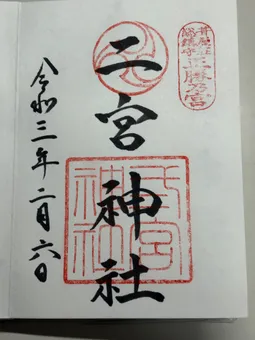 正勝乃宮
二宮神社
二宮神社
令和三年二月六日